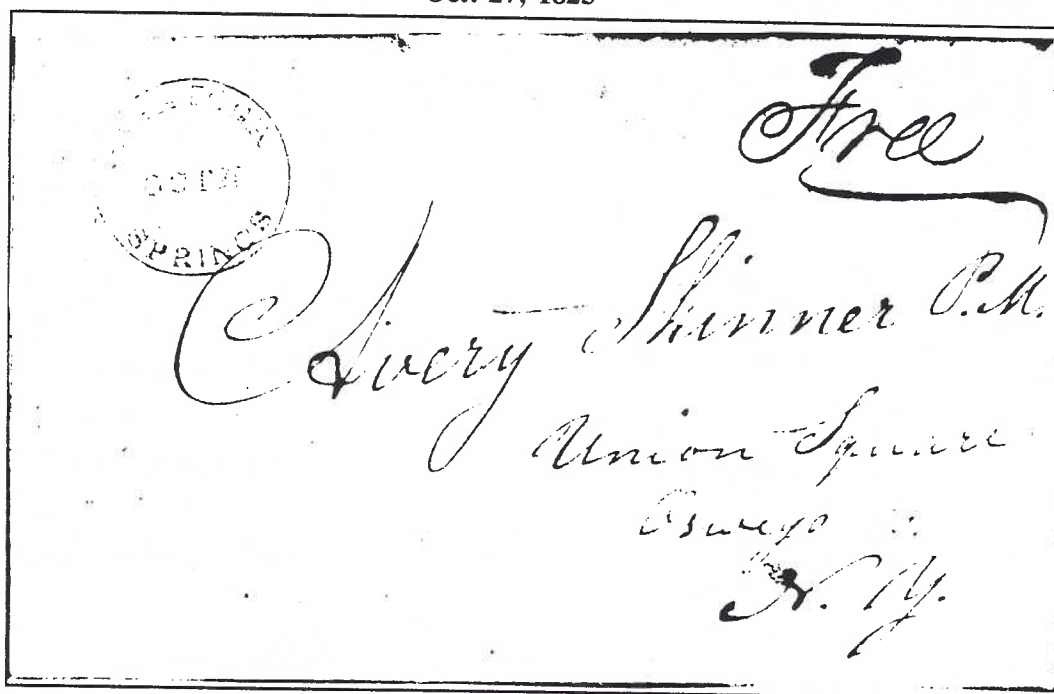 Free
SPRINGS
Avery Skinner P.M.
Union Square
Oswego
N. Y.